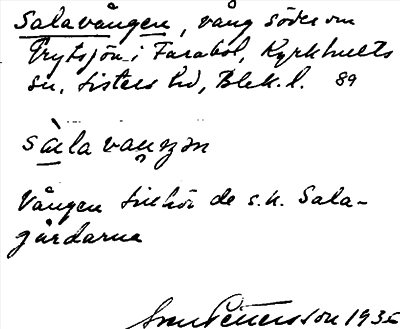 Salavången, vång söder om
Grytsjön i Farabol, Kyrkhults
sn, Listers hd, Blek. l. 89
Vången tillhör de s.k. Sala-
gårdarna
Sven Pettersson 1936